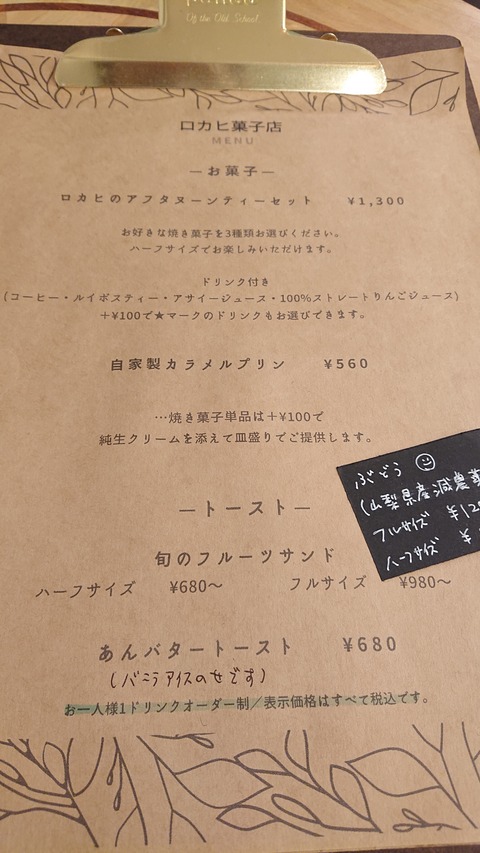 Of the Old School.
ロカヒ菓子店
MENU
―お菓子―
ロカヒのアフタヌーンティーセット ¥1,300
お好きな焼き菓子を3種類お選びください。
ハーフサイズでお楽しみいただけます。
ドリンク付き
(コーヒー・ルイボスティー・アサイージュース・100%ストレートりんごジュース)
＋¥100で★マークのドリンクもお選びできます。
自家製カラメルプリン ¥560
…焼き菓子単品は＋¥100で
純生クリームを添えて皿盛りでご提供します。
ぶどう ☺
(山梨県産減農薬
フルサイズ ¥12
ハーフサイズ ¥
―トースト―
旬のフルーツサンド
ハーフサイズ ¥680～ フルサイズ ¥980～
あんバタートースト ¥680
(バニラアイスのせです)
お一人様1ドリンクオーダー制／表示価格はすべて税込です。